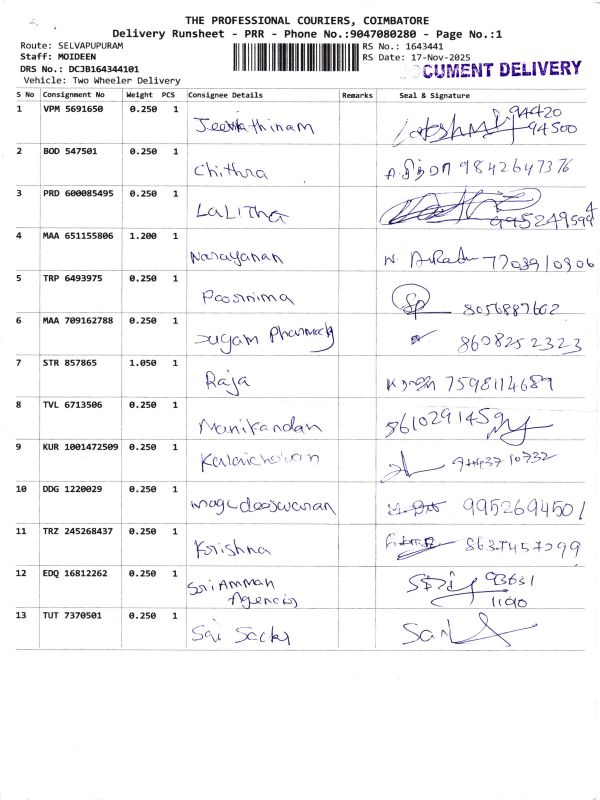 THE PROFESSIONAL COURIERS, COIMBATORE
Delivery Runsheet - PRR - Phone No.:9047080280 - Page No.:1
Route: SELVAPUPURAM
RS No.: 1643441
Staff: MOIDEEN
RS Date: 17-Nov-2025
DRS No.: DCJB164344101
CUMENT DELIVERY
Vehicle: Two Wheeler Delivery
S No Consignment No Weight PCS Consignee Details Remarks Seal & Signature
1 VPM 5691650 0.250 1 94420
94500
2 BOD 547501 0.250 1 Chithra 9842647376
3 PRD 600085495 0.250 1 Lalitha
4 MAA 651155806 1.200 1 Narayanan
5 TRP 6493975 0.250 1 Poornima 8056887602
6 MAA 709162788 0.250 1 Sugam Pharmacy 8608252323
7 STR 857865 1.050 1 Raja 7598114689
8 TVL 6713506 0.250 1 Manikandan
9 KUR 1001472509 0.250 1
10 DDG 1220029 0.250 1 9952694501
11 TRZ 245268437 0.250 1 Krishna
12 EDQ 16812262 0.250 1 Sri Amman 93631
Agencis
13 TUT 7370501 0.250 1 Sai